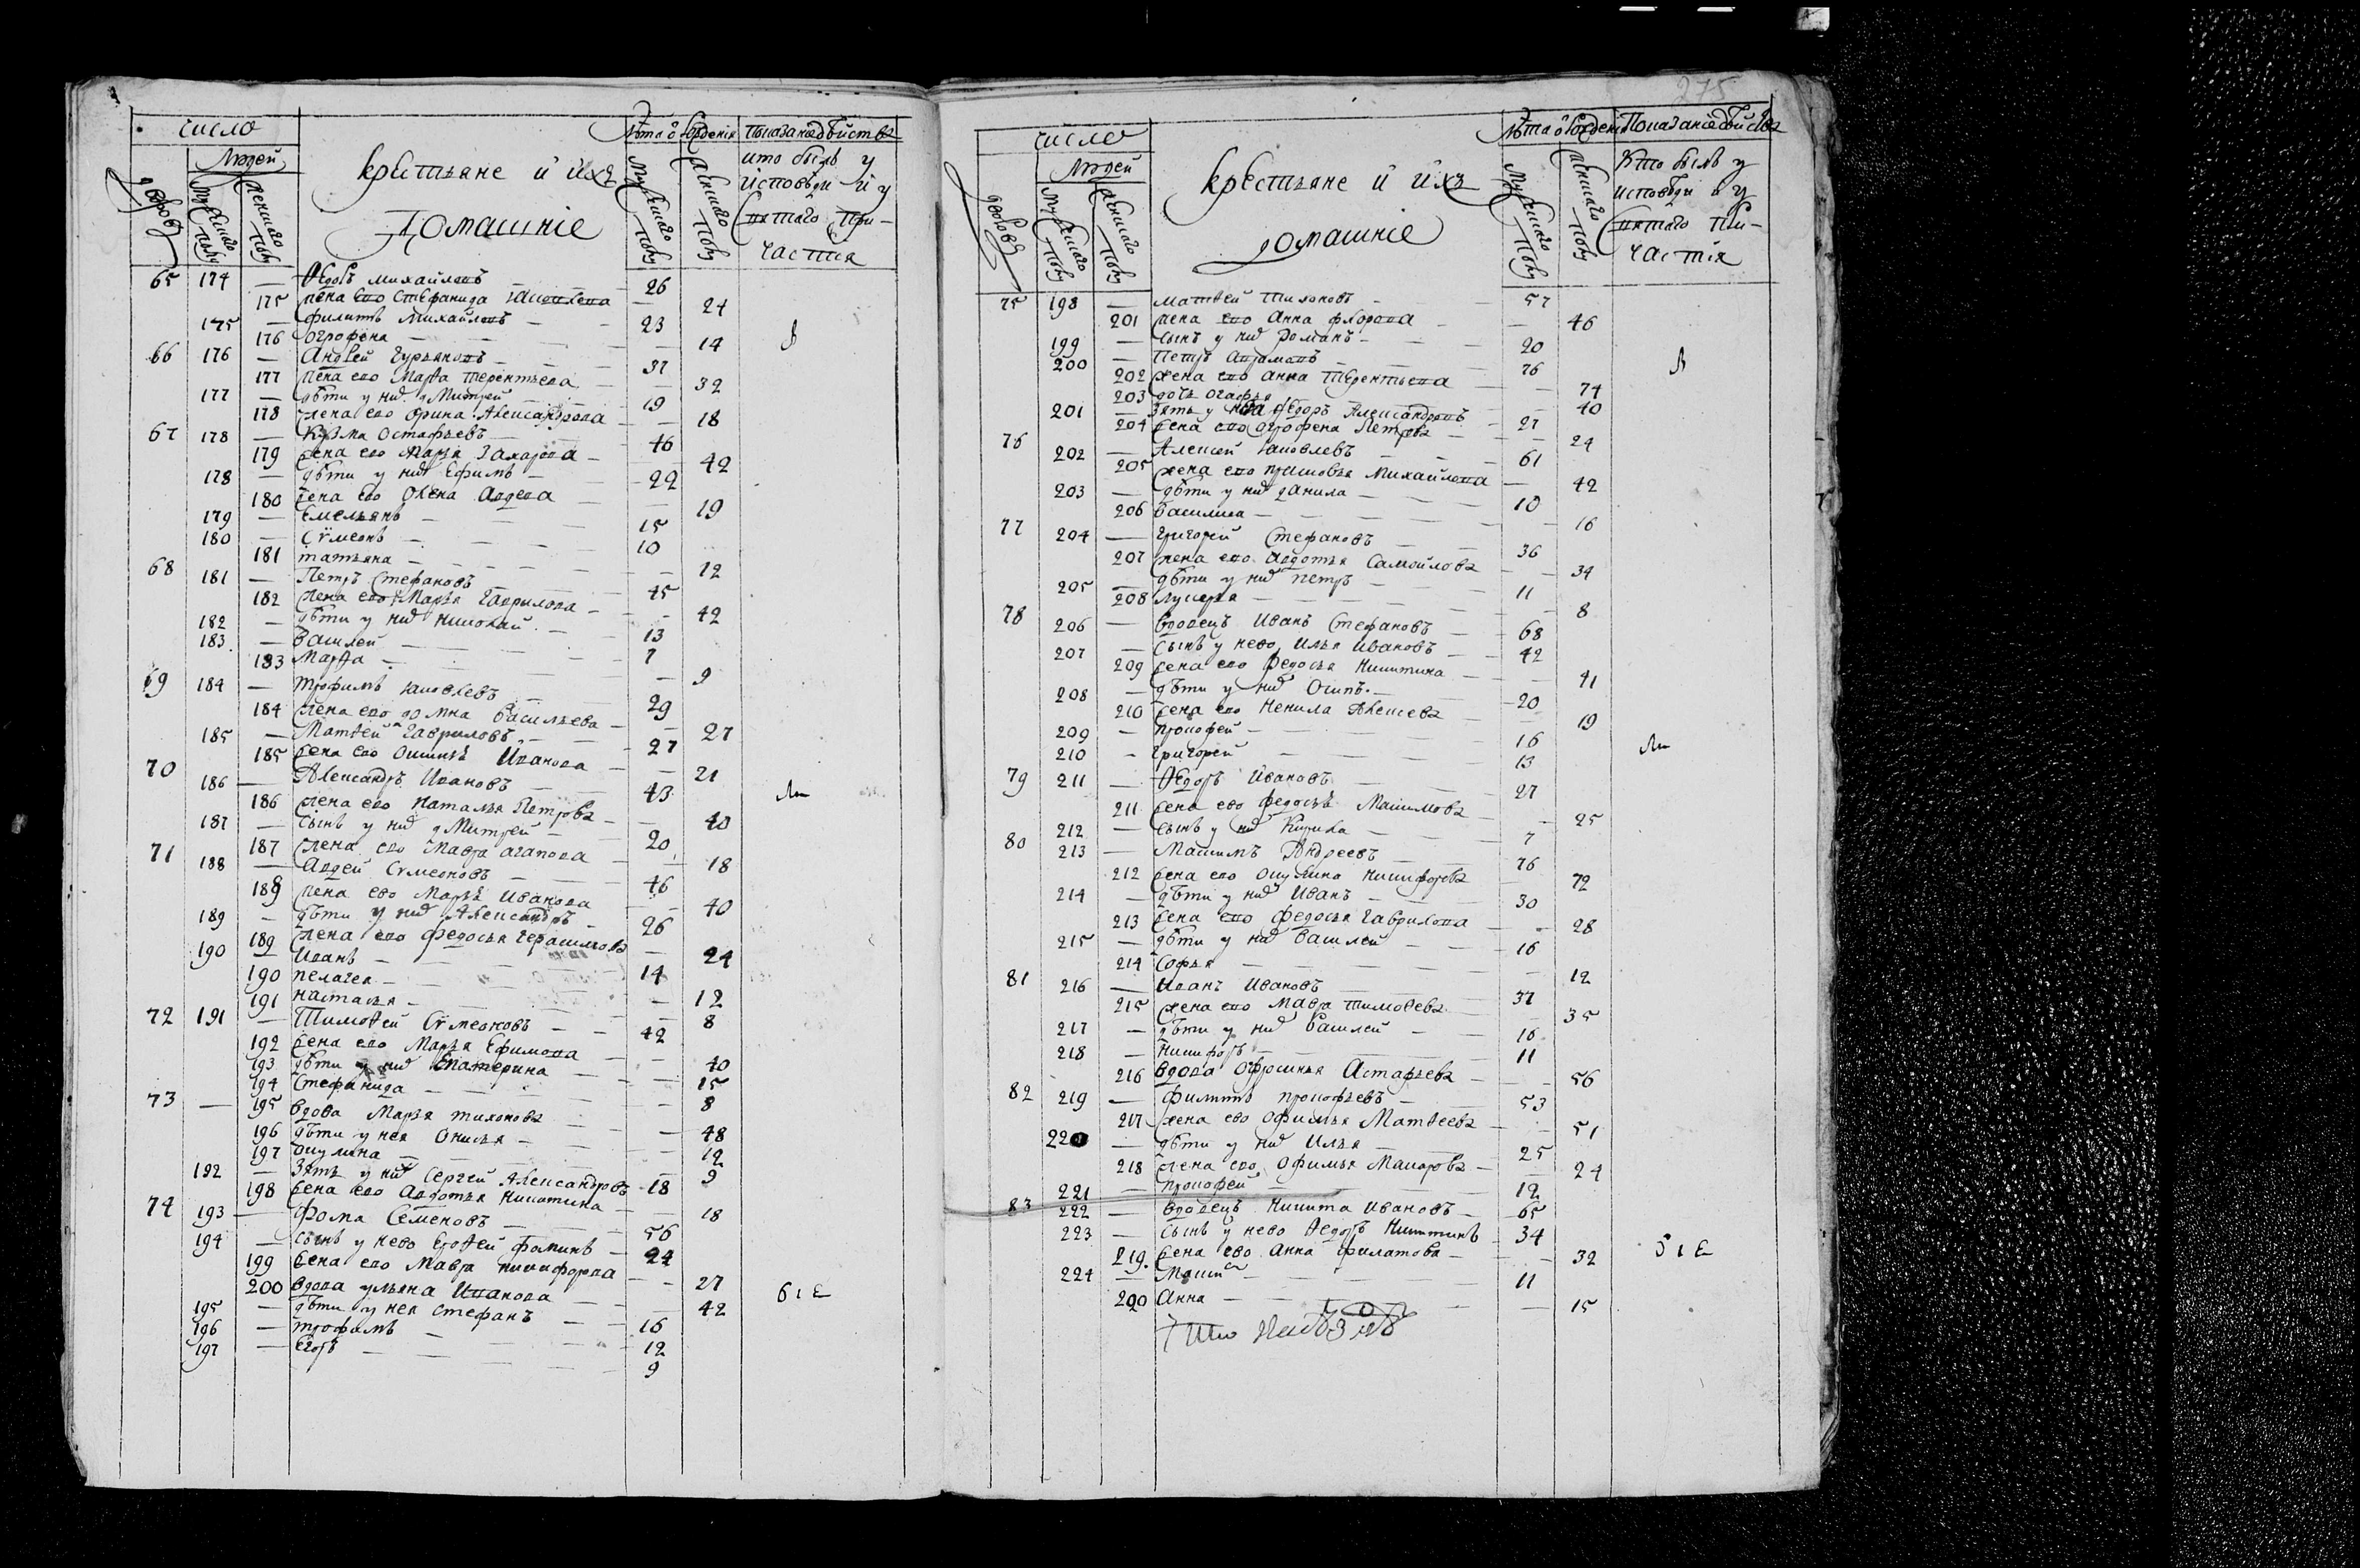 число
Людей
дворовъ
мужеска полу
женска полу
крестьяне и ихъ
Домашніе
Лѣта ѿ рожденія
мужеска полу
женска полу
Показаніе дѣйства
кто былъ у
исповѣди и у
святаго при-
частія
65 174 — Ѳедоръ михайловъ 26
175 жена ево Стефанида Яковлева 24
175 — филипъ михайловъ 23
176 огрофена 14
66 176 — Андрей Гурьяновъ 37
177 жена ево Марѳа терентьева 32
177 — дѣти у них дмитрей 19
178 жена ево орина Александрова 18
67 178 — Кузма остафьевъ 46
179 жена ево Марья Захарова 42
178 — дѣти у них Ефимъ 22
180 жена ево Олена Авдева 19
179 — Емельянъ 15
180 — Сѵмеонъ 10
181 татьяна 12
68 181 — Петръ Стефановъ 45
182 жена ево Марья Гаврилова 42
182 — дѣти у них николай 13
183 — Василей 7
183 Марѳа 9
69 184 — трофимъ яковлевъ 29
184 жена ево домна Васильева 27
185 — Матѳей Гавриловъ 27
185 жена ево Иванова 21
70 186 — Александръ Ивановъ 43
186 жена ево наталья Петрова 40
187 — сынъ у них дмитрей 20
71 187 жена ево Мавра агапова 18
188 — Авдей Сѵмеоновъ 46
188 жена ево Марья Иванова 40
189 — дѣти у них Александръ 26
189 жена ево федосья герасимова 24
190 — Иванъ 14
190 пелагея 12
191 настасья 8
72 191 — Тимоѳей Сѵмеоновъ 42
192 жена ево Марья Ефимова 40
193 дѣти у них Екатерина 15
194 Стефанида 8
73 — 195 вдова Марья тихонова 48
196 дѣти у нея Онисья 12
197 окулина 9
192 — Зять у них Сергей Александровъ 18
198 жена ево Авдотья никитина 18
74 193 — Фома Семеновъ 56
194 — сынъ у нево Ероѳей фоминъ 24
199 жена ево Мавра никифорова 27
200 вдова ульяна Иванова 42
195 — дѣти у нея стефанъ 16
196 — трофимъ 12
197 — Егоръ 9
275
число
Людей
дворовъ
мужеска полу
женска полу
крестьяне и ихъ
домашніе
Лѣта ѿ рожденія
мужеска полу
женска полу
Показаніе дѣйства
Кто былъ у
исповѣди и у
святаго при-
частія
75 198 — матѳей тихоновъ 57
201 жена ево Анна флорова 46
199 — сынъ у них Романъ 20
200 — Петръ 76
202 жена ево Анна терентьева 74
203 дочь огафья 40
201 — Зять у них Ѳедоръ Александровъ 27
204 жена ево огрофена Петрова 24
76 202 — Алексей яковлевъ 61
205 жена ево прасковья михайлова 42
203 — дѣти у них данила 10
206 василиса 16
77 204 — григорей Стефановъ 36
207 жена ево авдотья Самойлова 34
205 — дѣти у них петръ 11
208 лукерья 8
78 206 — вдовецъ Иванъ Стефановъ 68
207 — сынъ у нево Илья Ивановъ 42
209 жена ево федосья никитина 41
208 — дѣти у них Осипъ 20
210 жена ево ненила Алексева 19
209 — прокофей 16
210 — григорей 13
79 211 — Ѳедоръ Ивановъ 27
211 жена ево федосья Максимова 25
212 — сынъ у них Кирила 7
80 213 — Максимъ Андреевъ 76
212 жена ево окулина никифорова 72
214 — дѣти у них Иванъ 30
213 жена ево федосья Гаврилова 28
215 — дѣти у них Василей 16
214 Софья 12
81 216 — Иванъ Ивановъ 37
215 жена ево Мавра тимоѳева 35
217 — дѣти у них Василей 16
218 — никифоръ 11
216 вдова Астафьева 56
82 219 — филипъ прокофьевъ 53
217 жена ево офимья Матѳеева 51
220 — дѣти у них Илья 25
218 жена ево офимья Макарова 24
221 — прокофей 12
83 222 — вдовецъ никита Ивановъ 65
223 — сынъ у нево Ѳедоръ никитинъ 34
219 жена ево Анна филатова 32
224 — 11
220 Анна 15